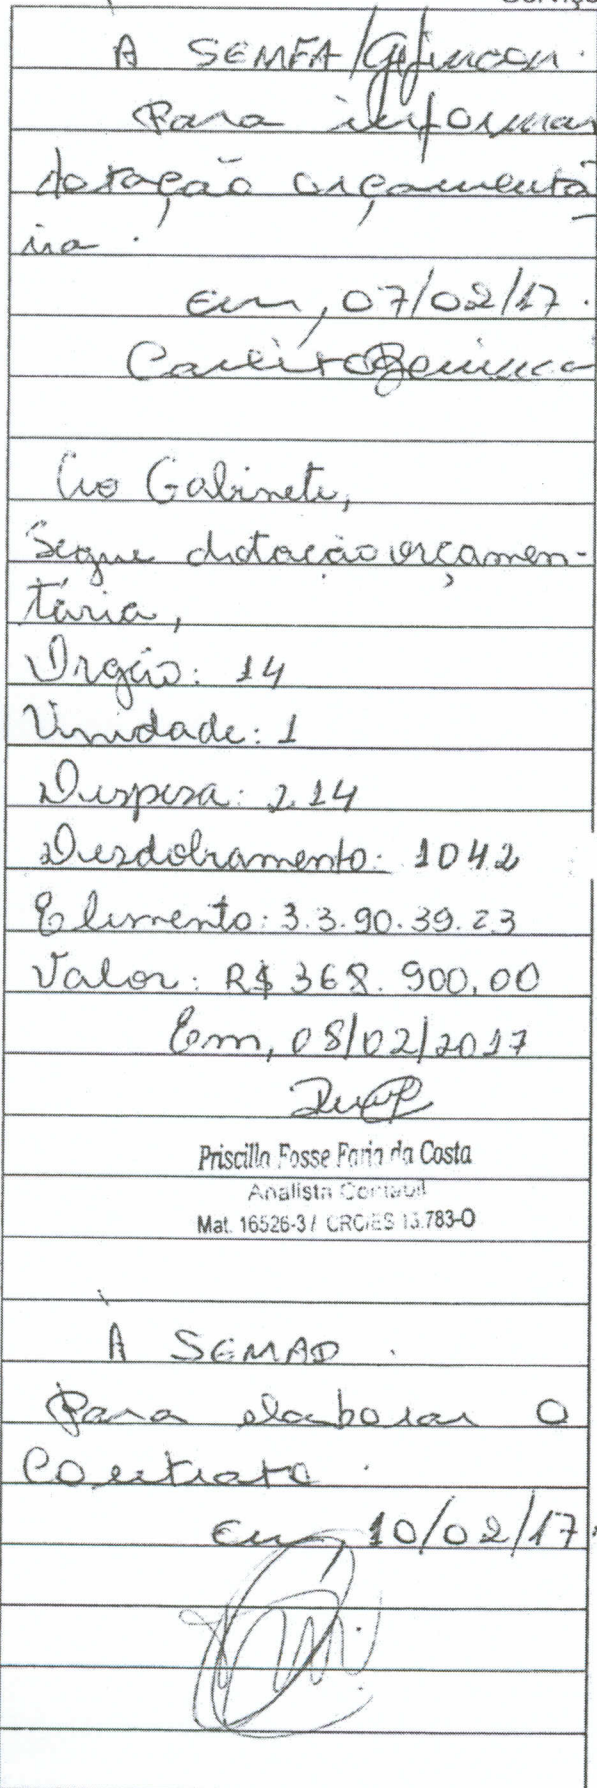 À SEMFA/
Para informar
dotação orçamentá
ria.
em, 07/02/17.
Ao Gabinete,
Segue dotação orçamen-
tária,
Órgão: 14
Unidade: 1
Despesa: 2.14
Desdobramento: 1042
Elemento: 3.3.90.39.23
Valor: R$ 368.900,00
Em, 08/02/2017
Priscilla Fosse Faria da Costa
Analista Contábil
Mat. 16526-3 / CRC/ES 13.783-O
À SEMAD.
Para elaborar o
Contrato.
em, 10/02/17.